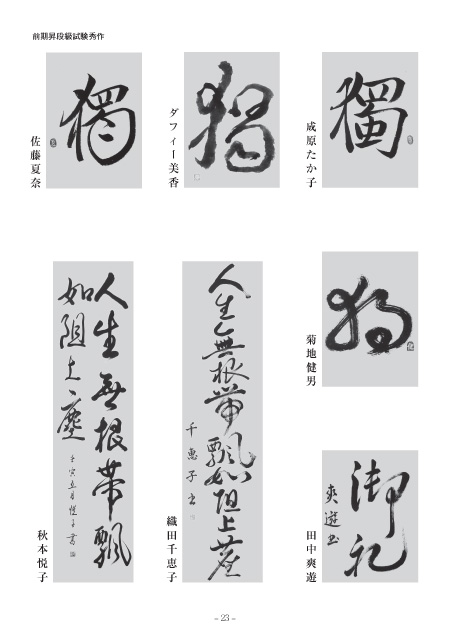 前期昇段級試験秀作
獨
成原たか子
獨
ダフィー美香
獨
佐藤夏奈
獨
菊地健男
御礼
爽遊書
田中爽遊
人生無根帯飄如陌上塵
千惠子書
織田千恵子
人生無根帯飄
如陌上塵
壬寅五月悦子書
秋本悦子
- 23 -